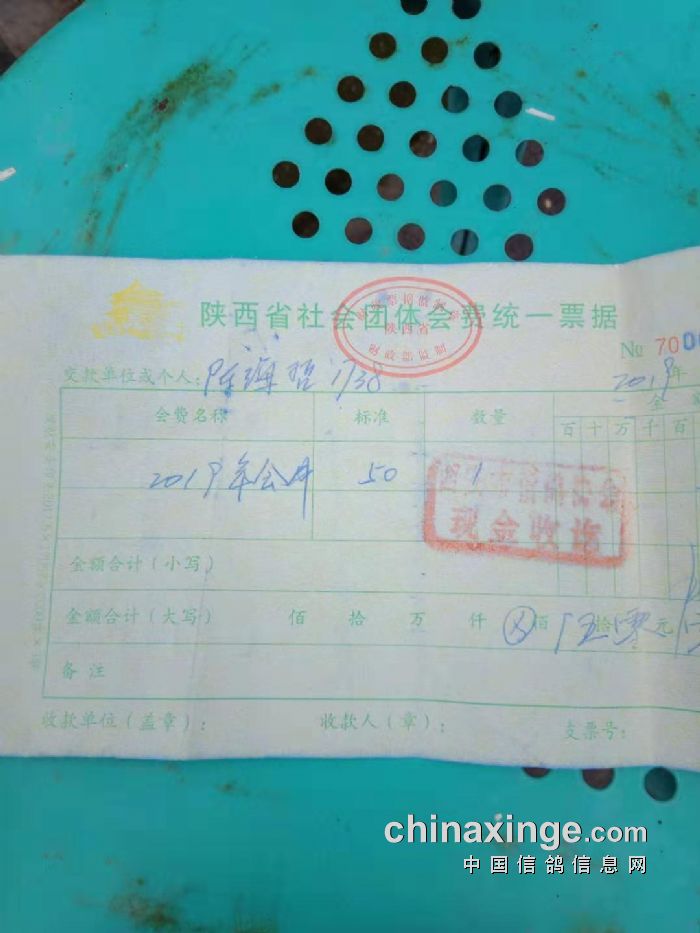 陕西省社会团体会费统一票据
陕西省
财政部监制
№ 700
交款单位或个人：陈海哲 1738 2019年
会费名称 标准 数量 金
百 十 万 千 百
2019年会费 50 1
现金收讫
金额合计（小写）
金额合计（大写） 佰 拾 万 仟 ⊗佰 伍拾零元
备 注
收款单位（盖章）： 收款人（章）： 支票号：
chinaxinge.com
中国信鸽信息网